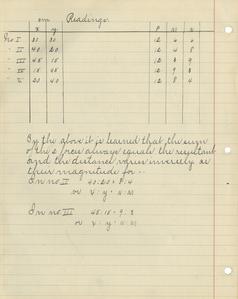 cm Readings
x y P M N
No I 20 20 12 6 6
" II 40 20 12 4 8
" III 45 15 12 3 9
" IV 15 45 12 9 3
" V 20 40 12 8 4
By the above it is learned that the sum
of the 2 forces always equals the resultant
and the distances varies inversely as
their magnitude for --
In no II 40:20 = 8:4
or x:y = N:M
In no III 45:15 = 9:3
or x:y = N:M